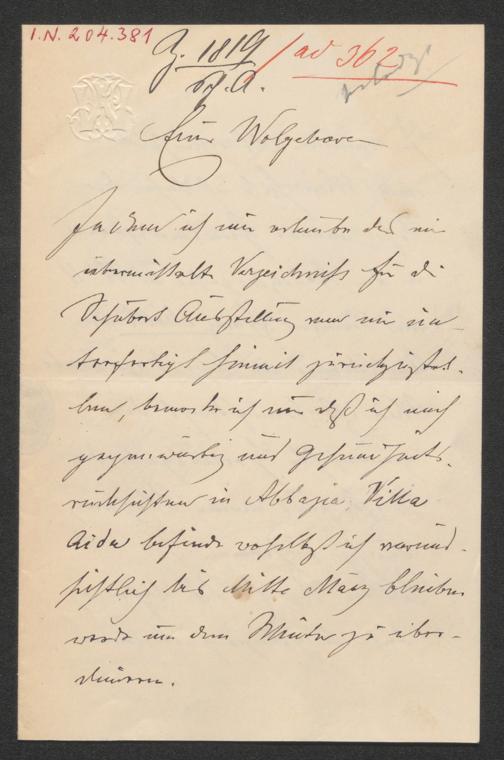 I.N. 204.381
Z. 1819 / ad 362
Sch. A.
Euer Wolgeboren
Indem ich mir erlaube das mir
übermittelte Verzeichniß für die
Schubert Ausstellung von mir un-
terfertigt hiemit zurückzustel-
len, bemerke ich nur daß ich mich
gegenwärtig aus Gesundheits-
rücksichten in Abbazia, Villa
Aida befinde woselbst ich voraus-
sichtlich bis Mitte März bleiben
werde um den Winter zu über-
dauern.